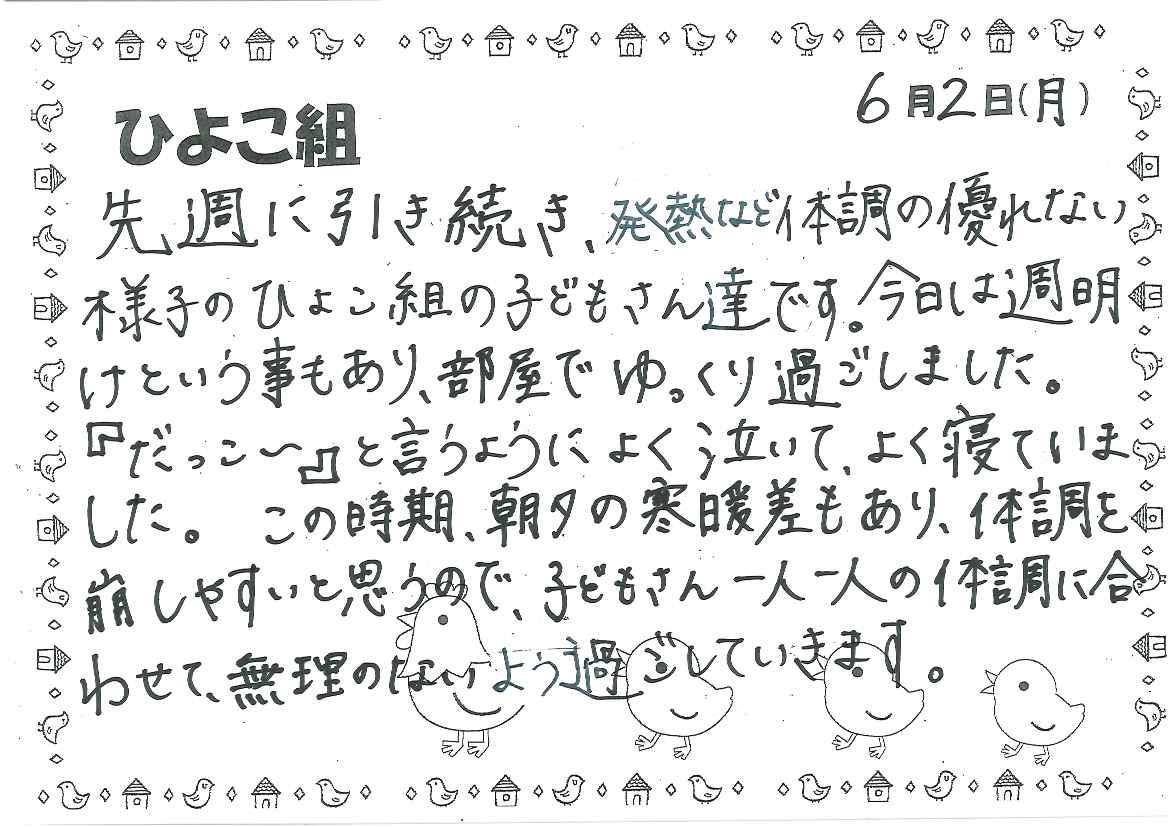 6月2日(月)
ひよこ組
先週に引き続き、発熱など体調の優れない
様子のひよこ組の子どもさん達です。今日は週明
けという事もあり、部屋でゆっくり過ごしました。
『だっこ〜』と言うようによく泣いて、よく寝ていま
した。この時期、朝夕の寒暖差もあり、体調を
崩しやすいと思うので、子どもさん一人一人の体調に合
わせて、無理のないよう過ごしていきます。